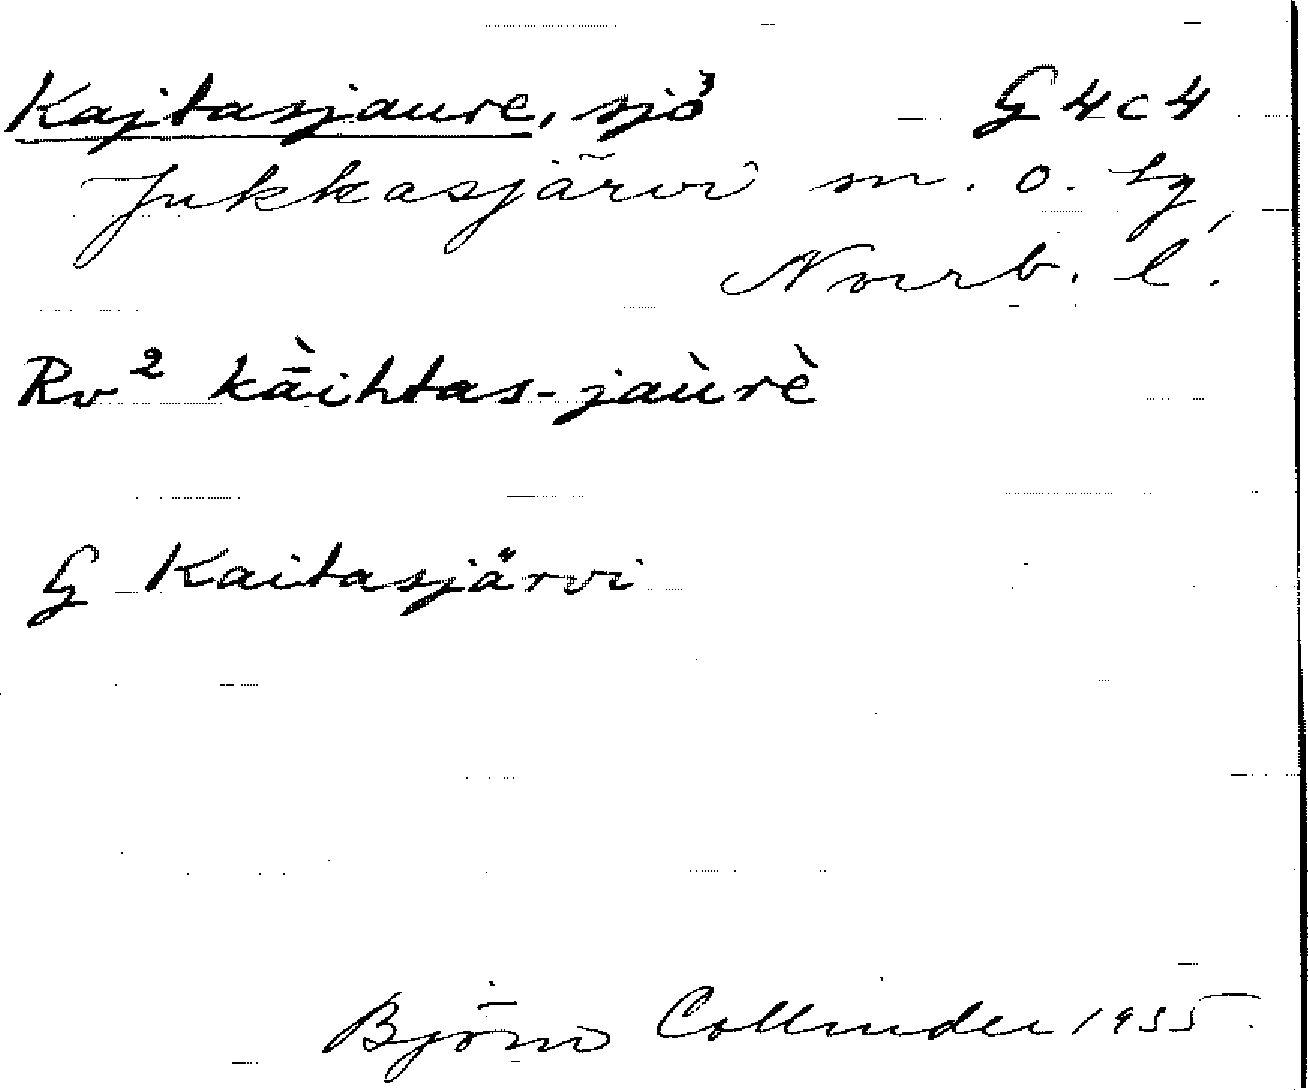 Kajtasjaure, sjö G 4 c 4
Jukkasjärvi m. o. tg,
Norrb. l.
Rv² kā̀ihtas-jaùrè
G Kaitasjärvi
Björn Collinder 1955